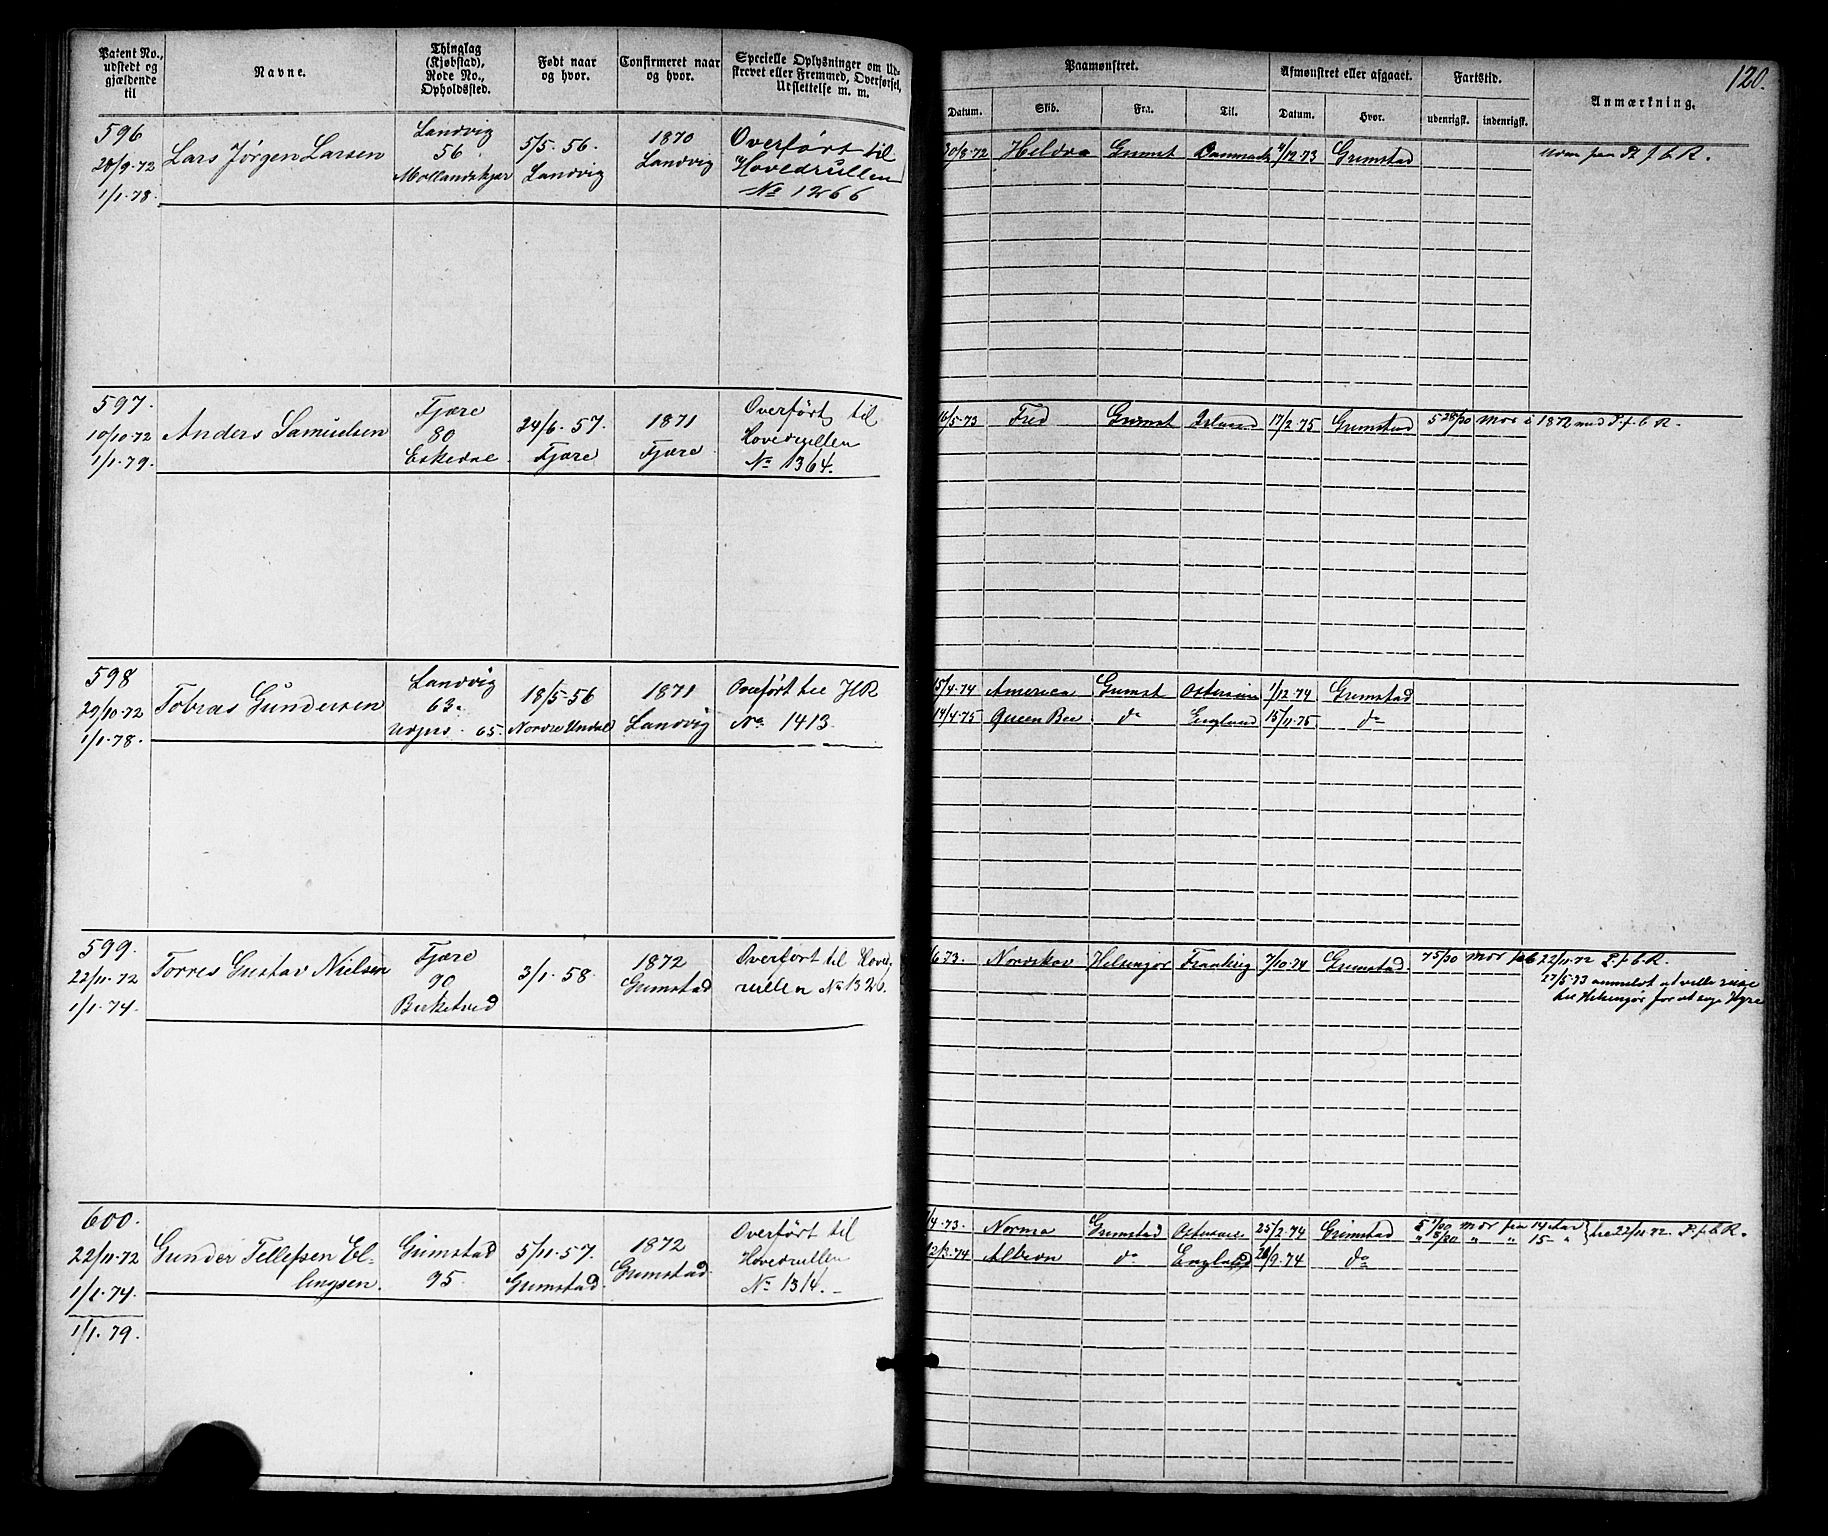 120.
Patent No., udstedt og gjældende til
Navne.
Thinglag (Kjøbstad), Rode No., Opholdssted.
Født naar og hvor.
Confirmeret naar og hvor.
Specielle Oplysninger om Udskrevet eller Fremmed, Overførsel, Udslettelse m. m.
Paamønstret.
Datum. Skib. Fra. Til.
Afmønstret eller afgaaet.
Datum. Hvor.
Fartstid.
udenrigsk. indenrigsk.
Anmærkning.
596
28/9-72
1/1-78.
Lars Jørgen Larsen
Landvig
56.
Mollandskjær
5/5-56.
Landvig
1870
Landvig
Overført til
Hovedrullen
No 1266
30/8-72 Heldva Grimst Danmark 4/12-73 Grimstad
597.
10/10-72
1/1-79.
Anders Samuelsen
Fjære
80
Eskedal
24/6-57.
Fjære
1871
Fjære
Overført til
Hovedrullen
No 1364.
16/5-73 Fred Grimst Island 17/2-75 Grimstad 5 28/30 Mør i 1872 med P.f.C.R.
598
29/10-72
1/1-78.
Tobias Gundersen
Landvig
63.
65.
18/5-56
Nordre Undal
1871
Landvig
Overført til HR
No. 1413
15/4-74 America Grimst Østersøen 1/12-74 Grimstad
14/4-75 Queen Bee do England 15/11-75. do
599.
22/11-72
1/1-74.
Torres Gustav Nielsen
Fjære
90
Birketved
3/1-58.
1872
Grimstad
Overført til Hoved-
rullen No 1326.
6-73. Nordskov Helsingør Frankrig 7/10-74 Grimstad. 7 5/30 Mør 22/11-72 P.f.C.R.
27/5-73 anmeldt at ville reise
til Helsingør for at søge Hyre
600.
22/11-72
1/1-74.
1/1-79.
Gunder Tellefsen El-
lingsen.
Grimstad
95.
5/11-57.
Grimstad.
1872
Grimstad.
Overført til
Hovedrullen
No 1314.
/4-73. Norma Grimstad Østersøen 25/2-74 Grimstad
12/3-74 Albion do England 28/9-74 do
22/11-72 P.f.C.R.